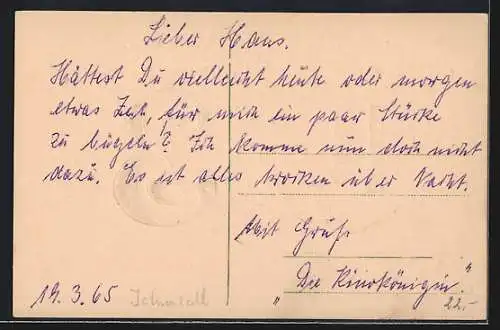 Lieber Hans.
Hättest Du vielleicht heute oder morgen
etwas Zeit, für mich ein paar Stücke
zu bügeln? Ich komme nun doch nicht
dazu. Es ist alles trocken über Nacht.
Mit Gruß
"Die Kinokönigin."
19.3.65
22.-